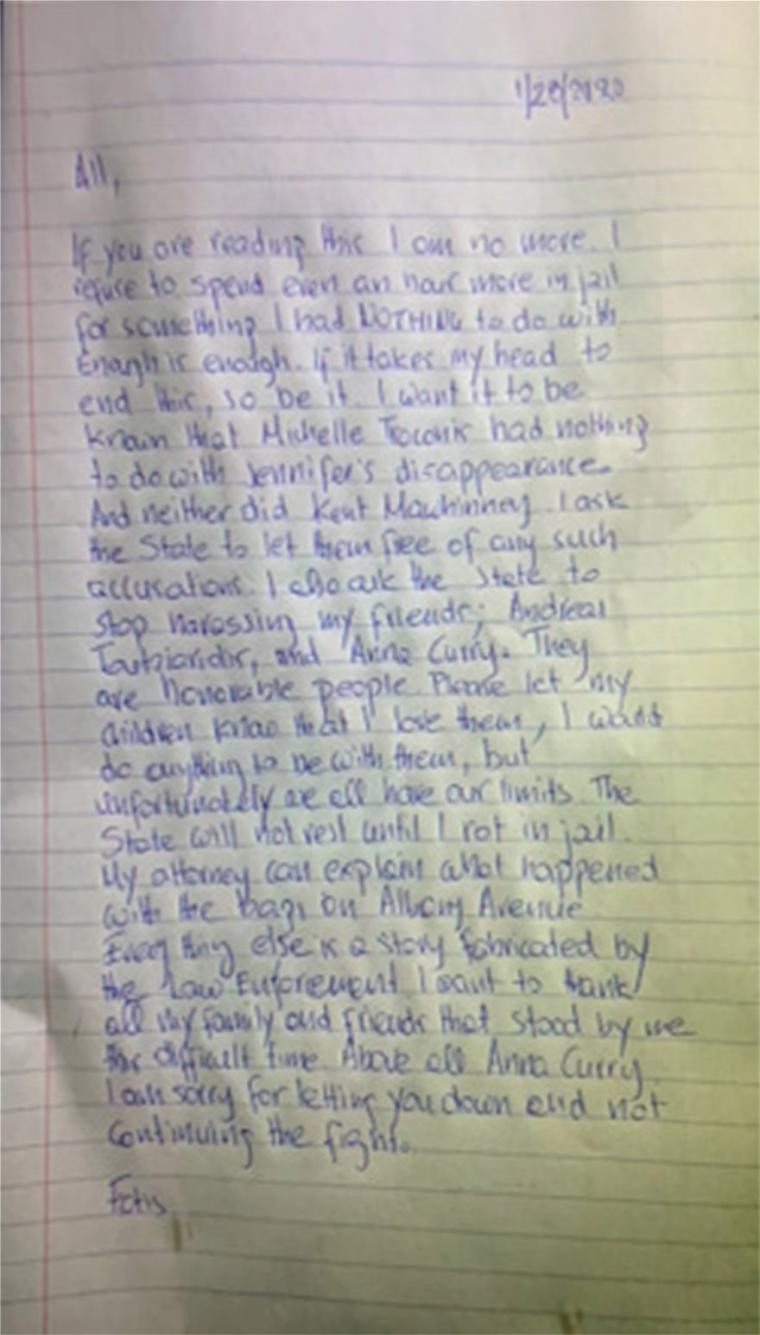 1/28/2020
All,
If you are reading this I am no more. I
refuse to spend even an hour more in jail
for something I had NOTHING to do with
Enough is enough. If it takes my head to
end this, so be it. I want it to be
known that Michelle Troconis had nothing
to do with Jennifer's disappearance.
And neither did Kent Mawhinney. I ask
the State to let them free of any such
accusations. I also ask the State to
stop harassing my friends; Andreas
Toutziaridis, and Anna Curry. They
are honorable people. Please let my
children know that I love them, I would
do anything to be with them, but
unfortunately we all have our limits. The
State will not rest until I rot in jail.
My attorney can explain what happened
with the bags on Albany Avenue
Every thing else is a story fabricated by
the Law Enforcement I want to thank
all my family and friends that stood by me
this difficult time. Above all Anna Curry.
I am sorry for letting you down and not
continuing the fight.
Fotis